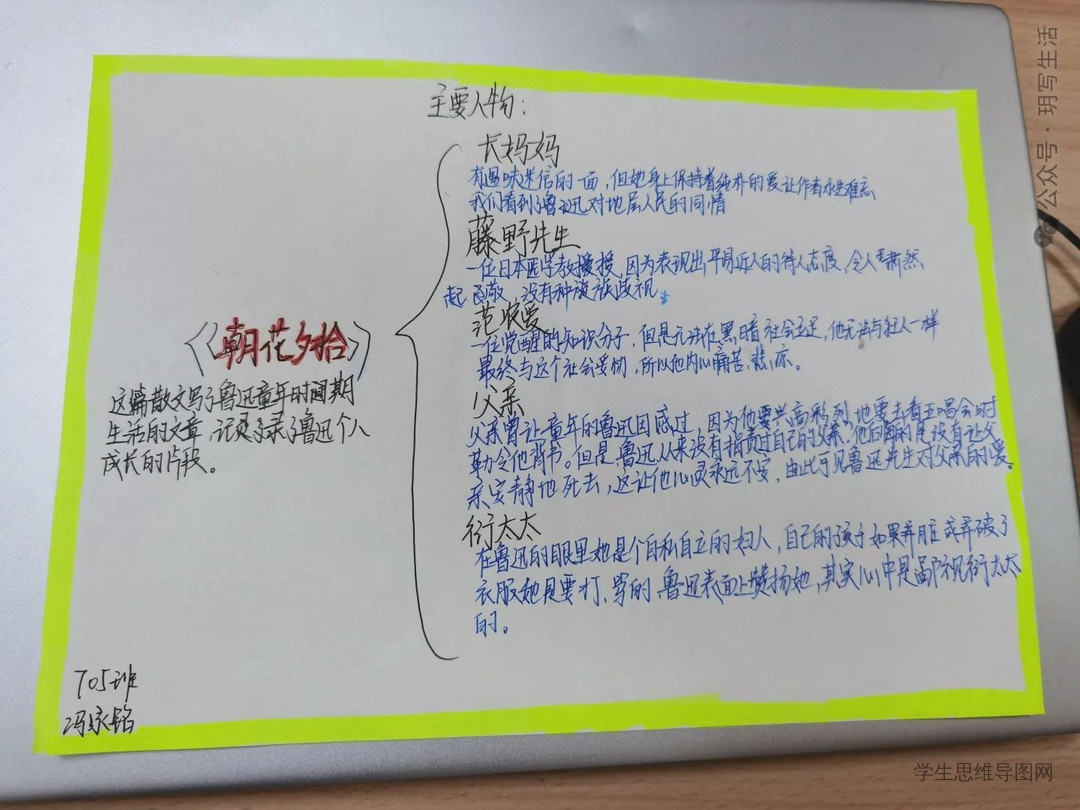 主要人物：
长妈妈
有愚昧迷信的一面，但她身上保持着纯朴的爱让作者永生难忘
我们看到了鲁迅对地层人民的同情
藤野先生
一位日本医学教授，因为表现出平易近人的待人态度，令人肃然
起敬，没有种族歧视。
范爱
一位觉醒的知识分子，但是无法在黑暗社会立足，他无法与狂人一样
最终与这个社会妥协，所以他内心痛苦悲凉。
父亲
父亲曾让童年的鲁迅困惑过，因为他要兴高彩烈地要去看五唱会时
勒令他背书。但是鲁迅从来没有指责过自己的父亲，他自责的是没有让父
亲安静地死去，这让他心灵永远不安，由此可见鲁迅先生对父亲的爱。
衍太太
在鲁迅的眼里她是个自私自立的妇人，自己的孩子如果弄脏或弄破了
衣服她是要打，骂的，鲁迅表面上赞扬她，其实心中是鄙视衍太太
的。
《朝花夕拾》
这篇散文写了鲁迅童年时间期
生活的文章，记录了鲁迅个人
成长的片段。
705班
冯
公众号·玥写生活
学生思维导图网